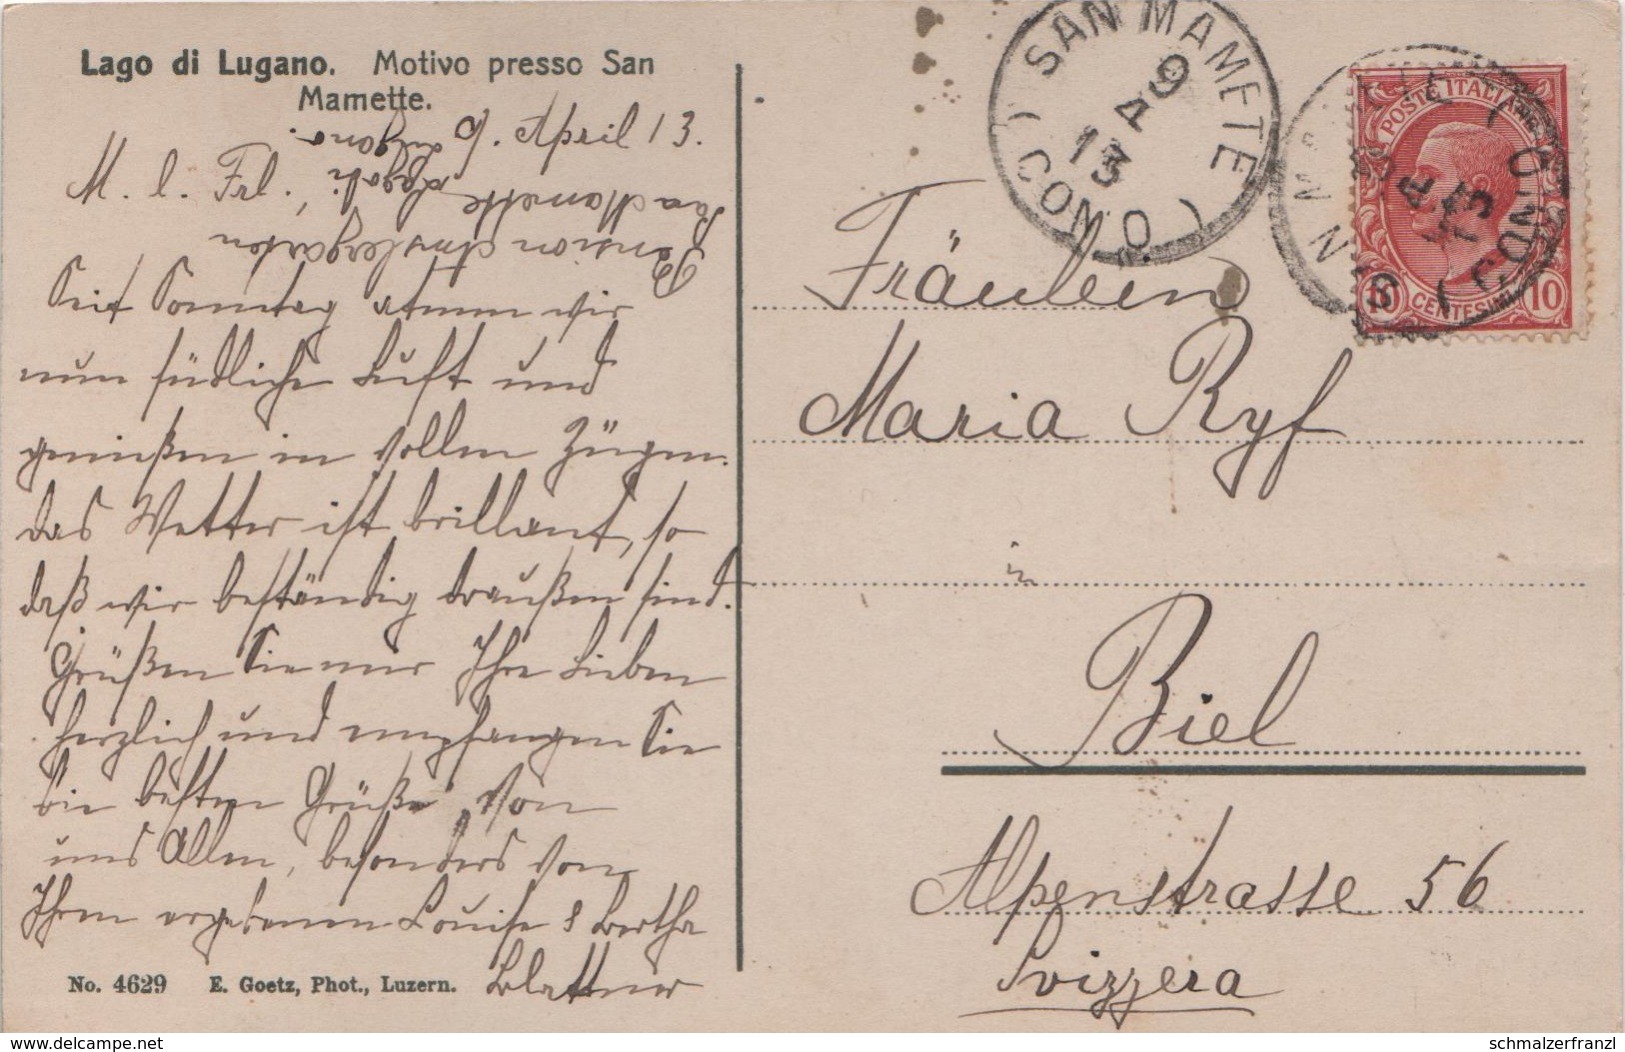 Lago di Lugano. Motivo presso San
Mamette.
9. April 13.
M. l. Frl.!
Seit Sonntag atmen wir
nun südliche Luft und
genießen in vollen Zügen.
das Wetter ist brillant, so
daß wir beständig draußen sind.
Grüßen Sie mir Ihre Lieben
herzlich und empfangen Sie
die besten Grüße von
uns Allen, besonders von
Ihren ergebenen Louise & Bertha
Blattner
Pension
San Mamette
Lugano.
No. 4629 E. Goetz, Phot., Luzern.
SAN MAMETTE
9 4 13
(COMO)
POSTE ITALIANE
10 CENTESIMI 10
Fräulein
Maria Ryf
in
Biel
Alpenstrasse 56
Svizzera
www.delcampe.net
schmalzerfranzl